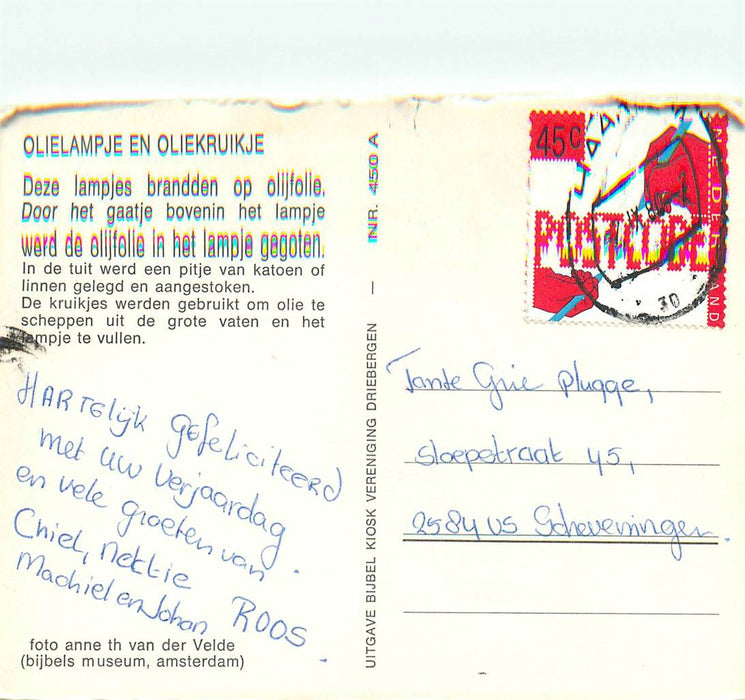 OLIELAMPJE EN OLIEKRUIKJE
Deze lampjes brandden op olijfolie.
Door het gaatje bovenin het lampje
werd de olijfolie in het lampje gegoten.
In de tuit werd een pitje van katoen of
linnen gelegd en aangestoken.
De kruikjes werden gebruikt om olie te
scheppen uit de grote vaten en het
lampje te vullen.
HARTELIJK gefeliciteerd
met uw verjaardag
en vele groeten van
Chiel, Nettie
Machiel en Johan ROOS.
foto anne th van der Velde
(bijbels museum, amsterdam)
UITGAVE BIJBEL KIOSK VERENIGING DRIEBERGEN — INR. 450 A
45c
NEDERLAND
30
Tante Grie Plugge,
Sloepstraat 45,
2584 VS Scheveningen.